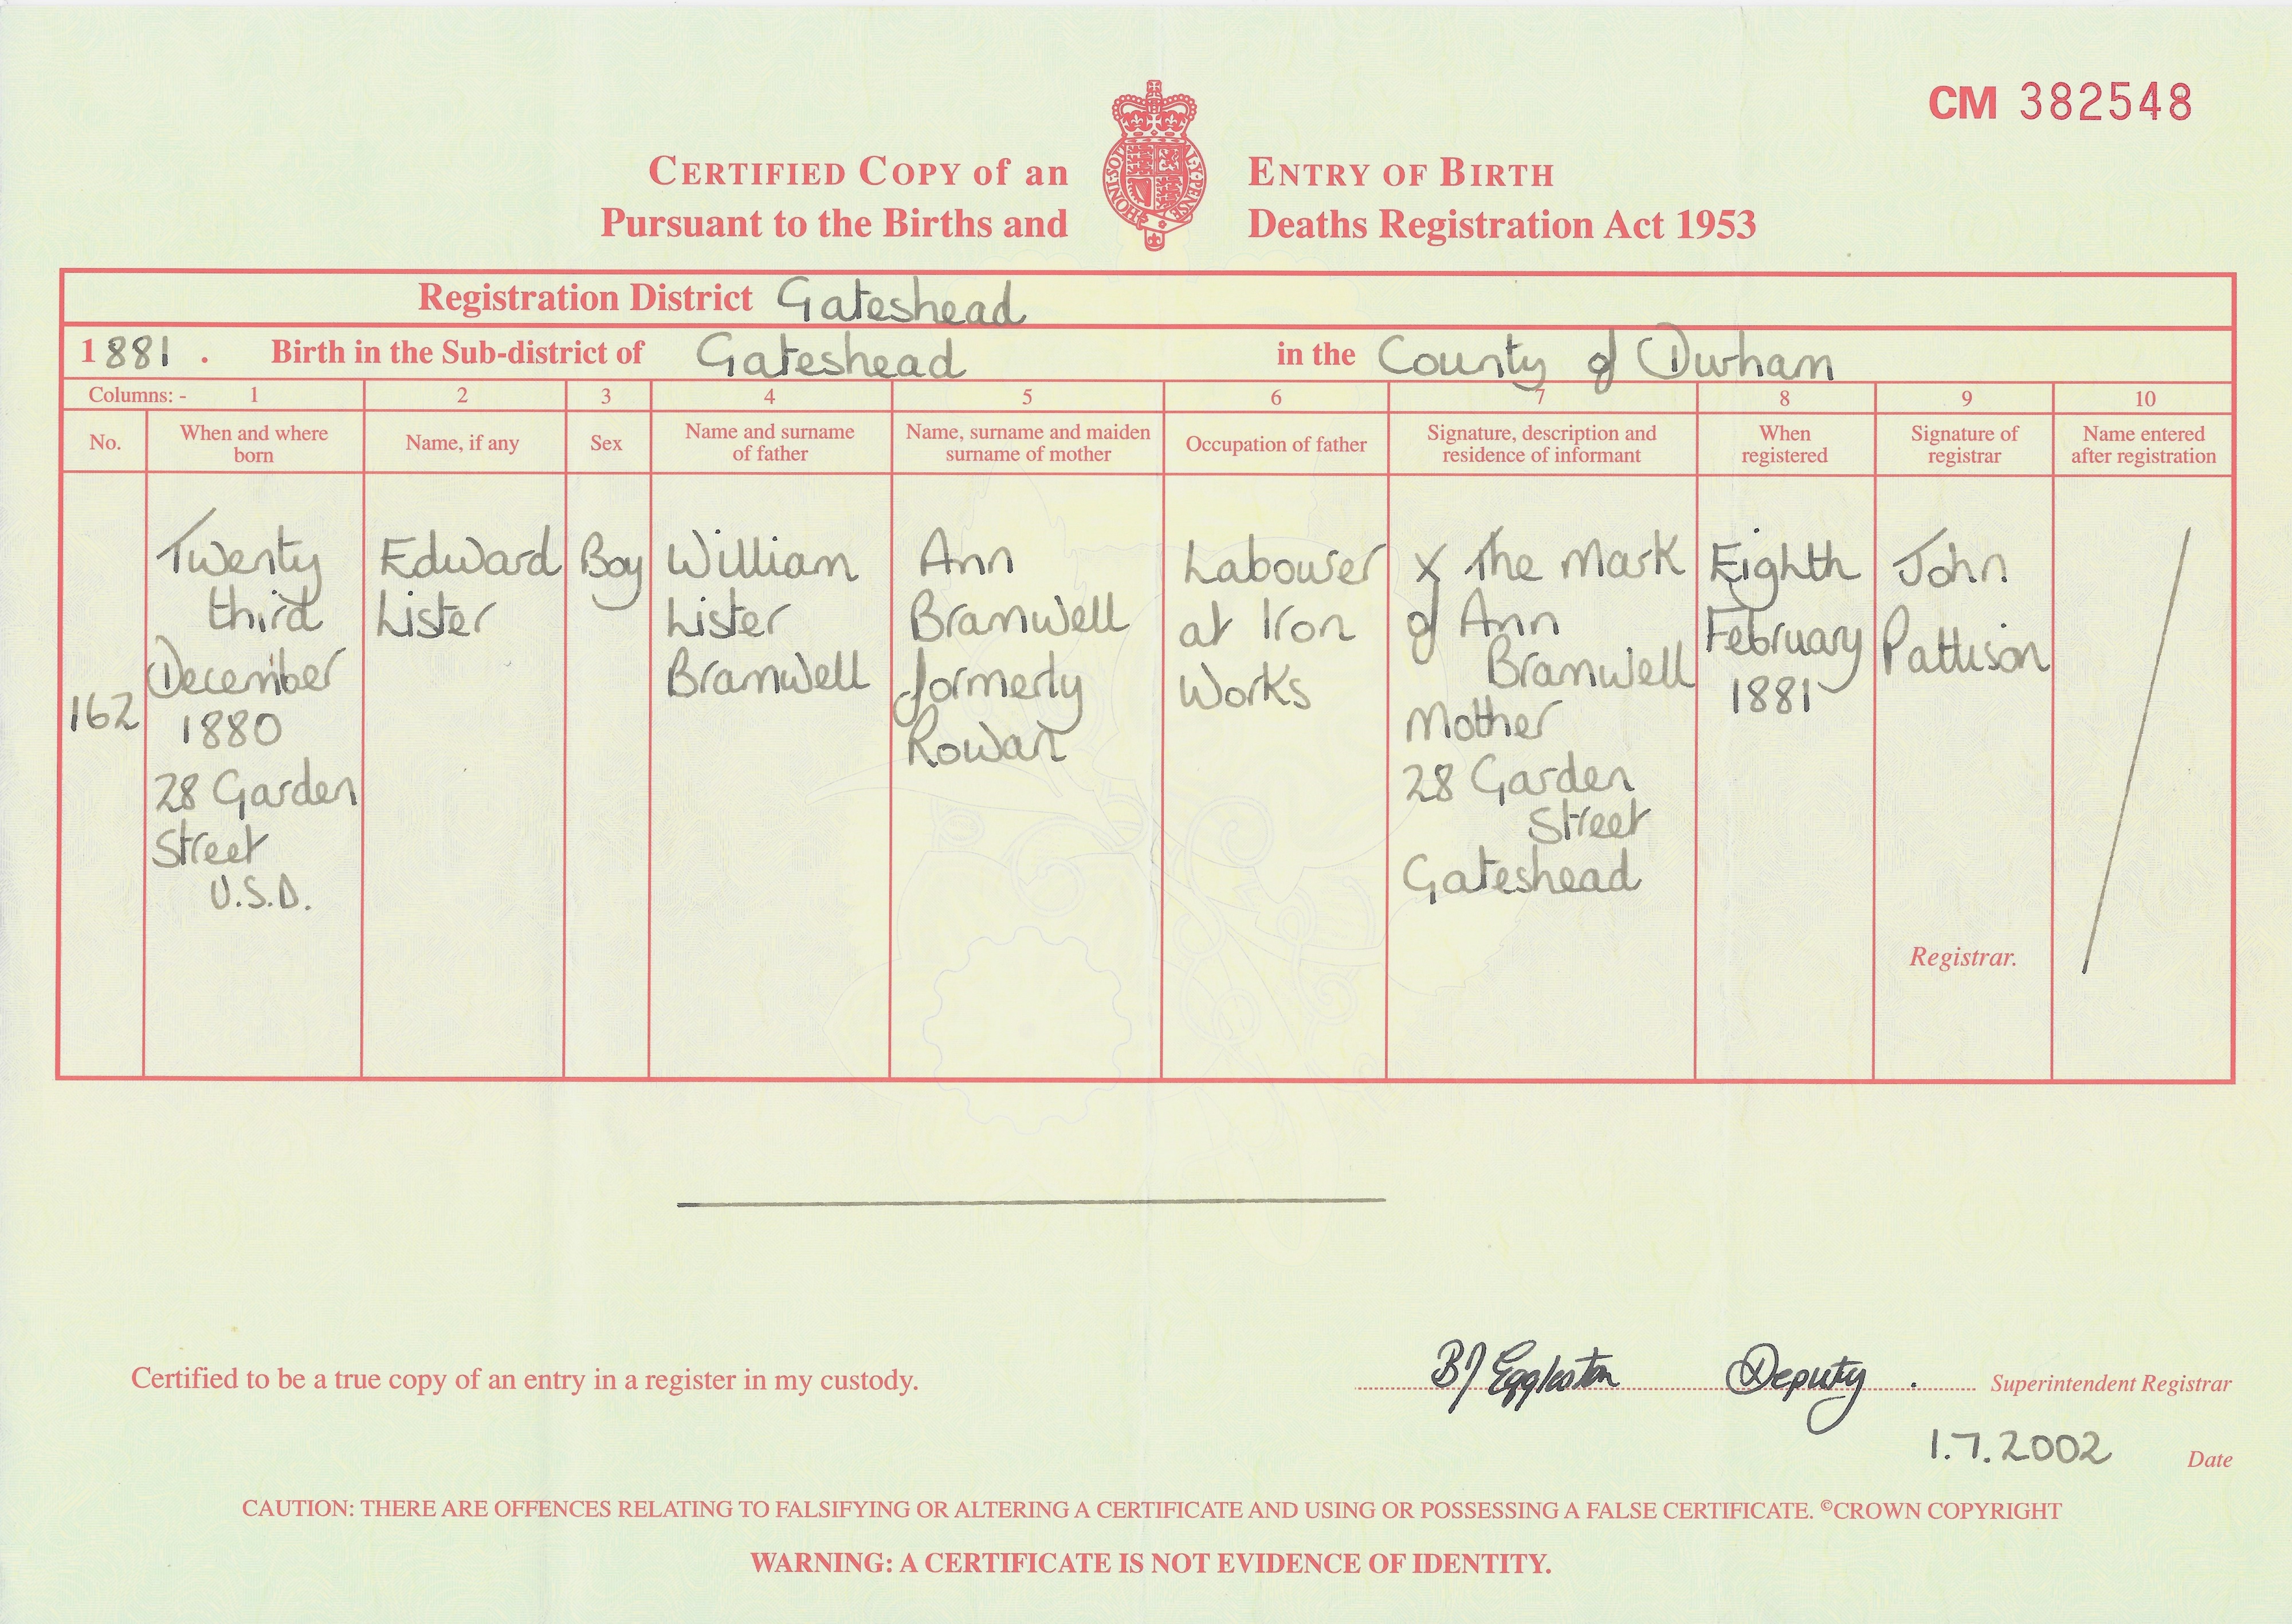 CM 382548
CERTIFIED COPY of an ENTRY OF BIRTH
Pursuant to the Births and Deaths Registration Act 1953
HONI·SOIT AL·Y·PENSE
Registration District Gateshead
1881. Birth in the Sub-district of Gateshead in the County of Durham
Columns: - 1 2 3 4 5 6 7 8 9 10
No.
When and where
born
Name, if any
Sex
Name and surname
of father
Name, surname and maiden
surname of mother
Occupation of father
Signature, description and
residence of informant
When
registered
Signature of
registrar
Name entered
after registration
162
Twenty
third
December
1880
28 Garden
Street
U.S.D.
Edward
Lister
Boy
William
Lister
Bramwell
Ann
Bramwell
formerly
Rowan
Labourer
at Iron
Works
X The Mark
of Ann
Bramwell
Mother
28 Garden
Street
Gateshead
Eighth
February
1881
John
Pattison
Registrar.
Certified to be a true copy of an entry in a register in my custody.
BJ Eggleston Deputy . Superintendent Registrar
1.7.2002 Date
CAUTION: THERE ARE OFFENCES RELATING TO FALSIFYING OR ALTERING A CERTIFICATE AND USING OR POSSESSING A FALSE CERTIFICATE. ©CROWN COPYRIGHT
WARNING: A CERTIFICATE IS NOT EVIDENCE OF IDENTITY.